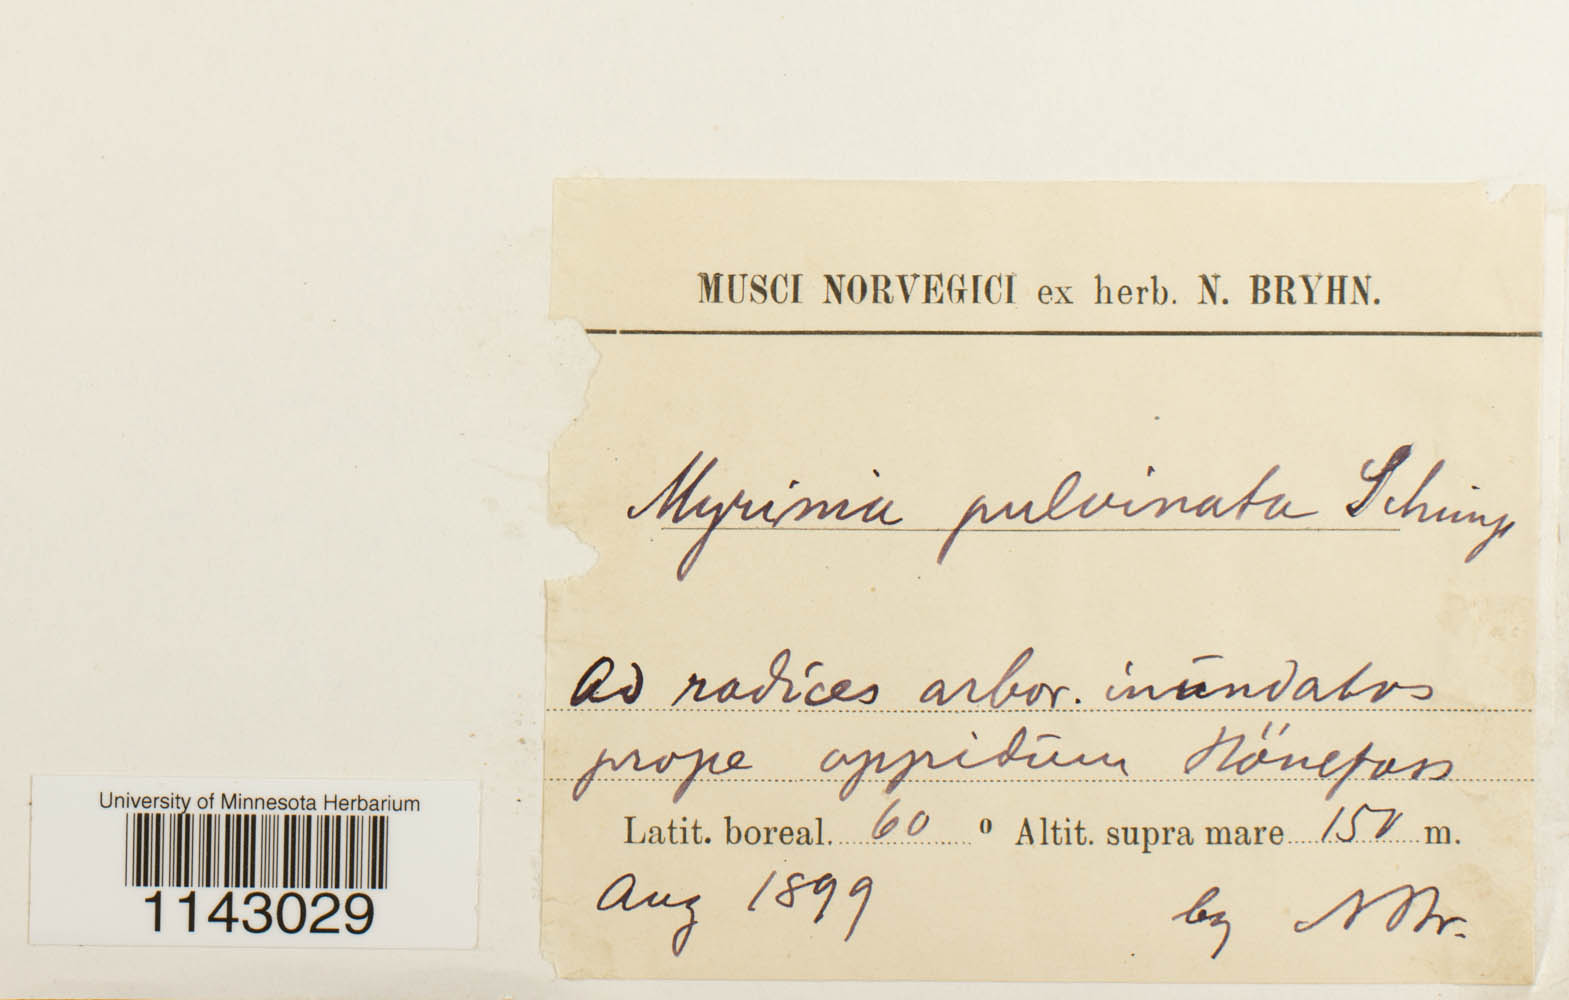 MUSCI NORVEGICI ex herb. N. BRYHN.
Myrinia pulvinata Schimp
Ad radices arbor. inundatas
prope oppidum Hönefoss
Latit. boreal. 60 ° Altit. supra mare 150 m.
Aug 1899
lg N Br.
University of Minnesota Herbarium
1143029